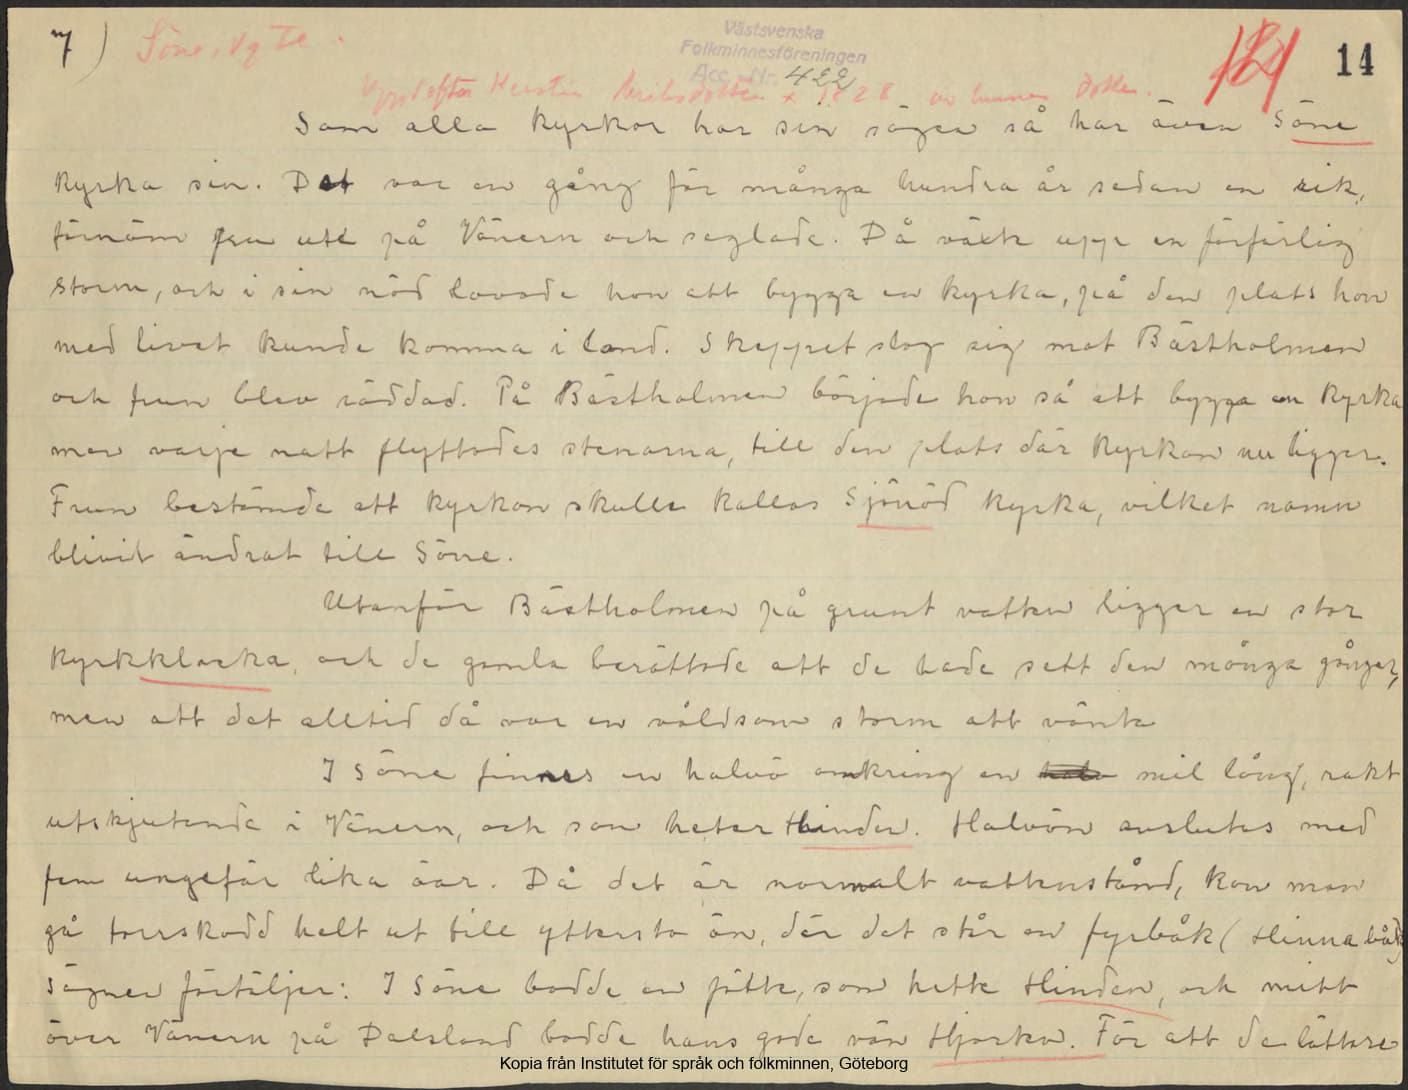 7)
Söne, Vg Te.
Västsvenska
Folkminnesföreningen
Acc. Nr. 422
14
Uppt efter Kerstin Eriksdotter x 1828 av hennes dotter.
Som alla kyrkor har sin sägen så har även Söne
kyrka sin. Det var en gång för många hundra år sedan en rik,
förnäm fru ute på Vänern och seglade. Då växte upp en förfärlig
storm, och i sin nöd lovade hon att bygga en kyrka, på den plats hon
med livet kunde komma i land. Skeppet slog sig mot Bästholmen
och frun blev räddad. På Bästholmen började hon så att bygga en kyrka
men varje natt flyttades stenarna, till den plats där kyrkan nu ligger.
Frun bestämde att kyrkan skulle kallas Sjönöd kyrka, vilket namn
blivit ändrat till Söne.
Utanför Bästholmen på grunt vatten ligger en stor
kyrkklocka, och de gamla berättade att de hade sett den många gånger,
men att det alltid då var en våldsam storm att vänta
I Söne finnes en halvö omkring en mil lång, rakt
utskjutande i Vänern, och som heter Hinden. Halvön avslutas med
fem ungefär lika öar. Då det är normalt vattenstånd, kan man
gå torrskodd helt ut till yttersta ön, där det står en fyrbåk (Hinna båk)
Sägnen förtäljer: I Söne bodde en jätte, som hette Hinden, och mitt
över Vänern på Dalsland bodde hans gode vän Hjorten. För att de lättare
Kopia från Institutet för språk och folkminnen, Göteborg